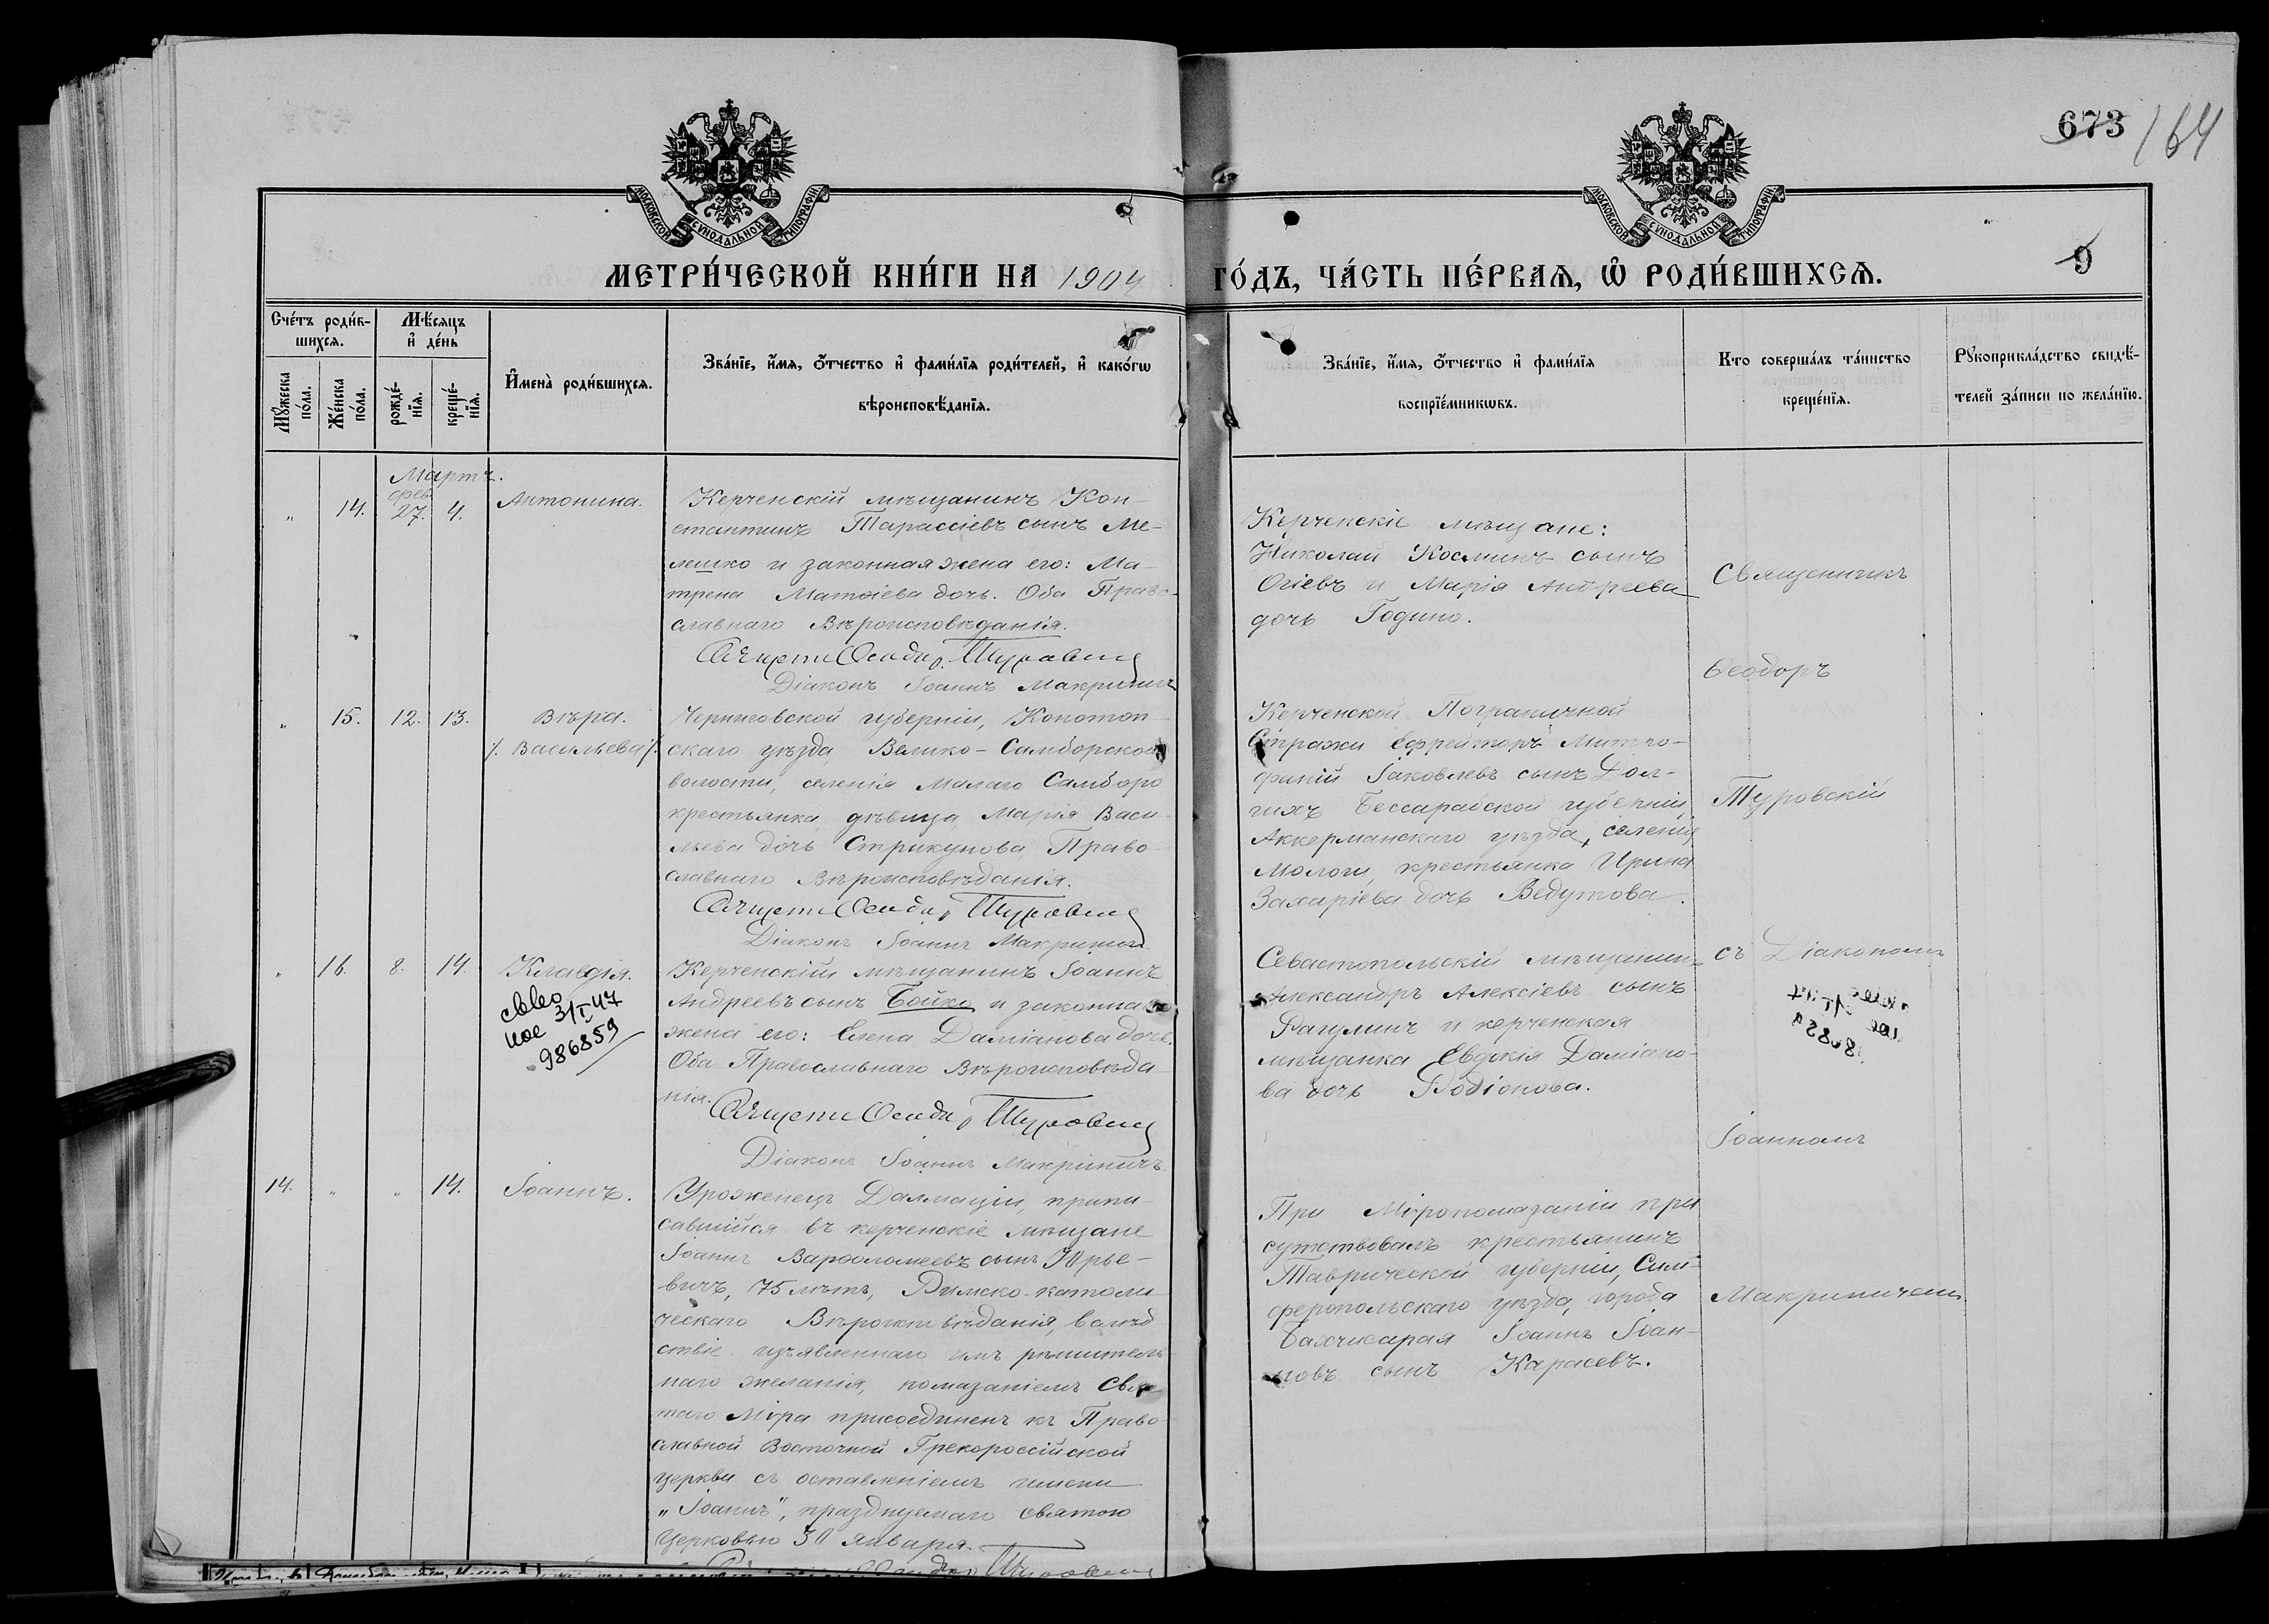 673 164
МОСКОВСКОЙ СѴНОДАЛЬНОЙ ТИПОГРАФІИ
МОСКОВСКОЙ СѴНОДАЛЬНОЙ ТИПОГРАФІИ
9
МЕТРИ́ЧЕСКОЙ КНИ́ГИ НА 1904 ГО́ДЪ, ЧА́СТЬ ПЕ́РВАѦ, Ѡ РОДИ́ВШИХСѦ.
Сче́тъ роди́в-
шихсѧ.
Мꙋжеска по́ла.
Же́нска по́ла.
Мѣ́сяцъ и҆ де́нь
рожде́-
нїѧ.
креще́-
нїѧ.
И҆мена̀ роди́вшихсѧ.
Зва́нїе, и҆́мѧ, ѻ҆́тчество и҆ фами́лїѧ роди́телей, и҆ како́гѡ
вѣроисповѣ́данїѧ.
Зва́нїе, и҆́мѧ, ѻ҆́тчество и҆ фами́лїѧ
воспрїе́мникѡвъ.
Кто соверша́лъ та́инство
креще́нїѧ.
Рꙋкоприкла́дство свидѣ́-
телей за́писи по жела́нїю.
Мартъ.
„ 14. фев. 27. 4. Антонина.
Керченскій мѣщанинъ Кон-
стантинъ Тарассіевъ сынъ Ме-
лешко и законная жена его: Ма-
трена Матѳіева дочь. Оба Право-
славнаго Вѣроисповѣданія.
Діаконъ Іоаннъ Макриничъ
Керченскіе мѣщане:
Николай Космин сынъ
Огіевъ и Марія Андреева
дочь Година.
Священникъ
Ѳеодоръ
Туровскій
съ Діакономъ
Іоанномъ
Макриничемъ
„ 15. 12. 13. Вѣра.
/. Васильева /.
Черниговской губерніи, Конотоп-
скаго уѣзда, Велико-Самборской
волости, селенія Малаго Самбора
крестьянка, дѣвица, Марія Васи-
льева дочь Стрикунова Право-
славнаго Вѣроисповѣданія.
Діаконъ Іоаннъ Макриничъ
Керченской Пограничной
Стражи Ефрейторъ Митро-
фаній Іаковлевъ сынъ Дол-
гихъ Бессарабской губерніи,
Аккерманскаго уѣзда, селенія
Мологи, крестьянка Ирина
Захаріева дочь Ведутова.
„ 16. 8. 14. Клавдія.
31/I 47
986859
Керченскій мѣщанинъ Іоаннъ
Андреевъ сынъ Бойко и законная
жена его: Елена Даміанова дочь.
Оба Православнаго Вѣроисповѣда
нія.
Діаконъ Іоаннъ Макриничъ
Севастопольскій мѣщанинъ
Александръ Алексіевъ сынъ
Рагулинъ и керченская
мѣщанка Евдокія Даміано-
ва дочь Родіонова.
14. „ „ 14. Іоаннъ.
Уроженецъ Далмаціи, припи-
савшійся въ керченскіе мѣщане
Іоаннъ Варѳоломеевъ сынъ Юрье-
вичъ, 75 лѣтъ, Римско-католи-
ческаго Вѣроисповѣданія, вслѣд
ствіе изъявленнаго имъ рѣшитель-
наго желанія, помазаніемъ Свя-
таго Мѵра присоединенъ къ Право
славной Восточной Грекороссійской
церкви съ оставленіемъ имени
„Іоаннъ", празднуемаго святою
Церковью 30 января.
При Мѵропомазаніи при
сутствовалъ крестьянинъ
Таврической губерніи, Сим-
феропольскаго уѣзда, города
Бахчисарая Іоаннъ Іоан-
новъ сынъ Карасевъ.